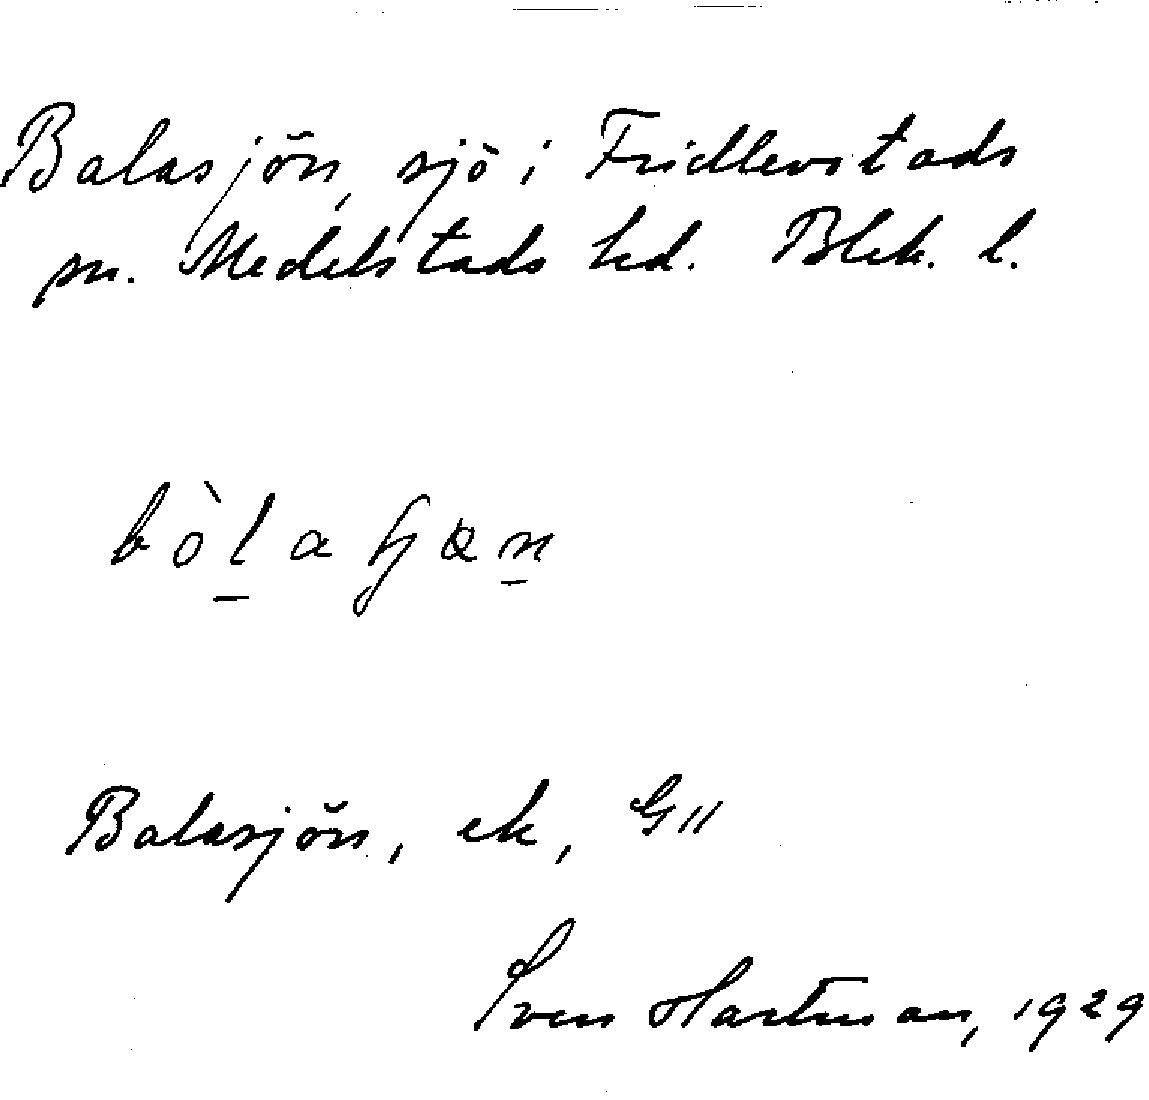 Balasjön, sjö i Fridlevstads
sn. Medelstads hd. Blek. l.
Balasjön, ek, G11
Sven Hartman, 1929